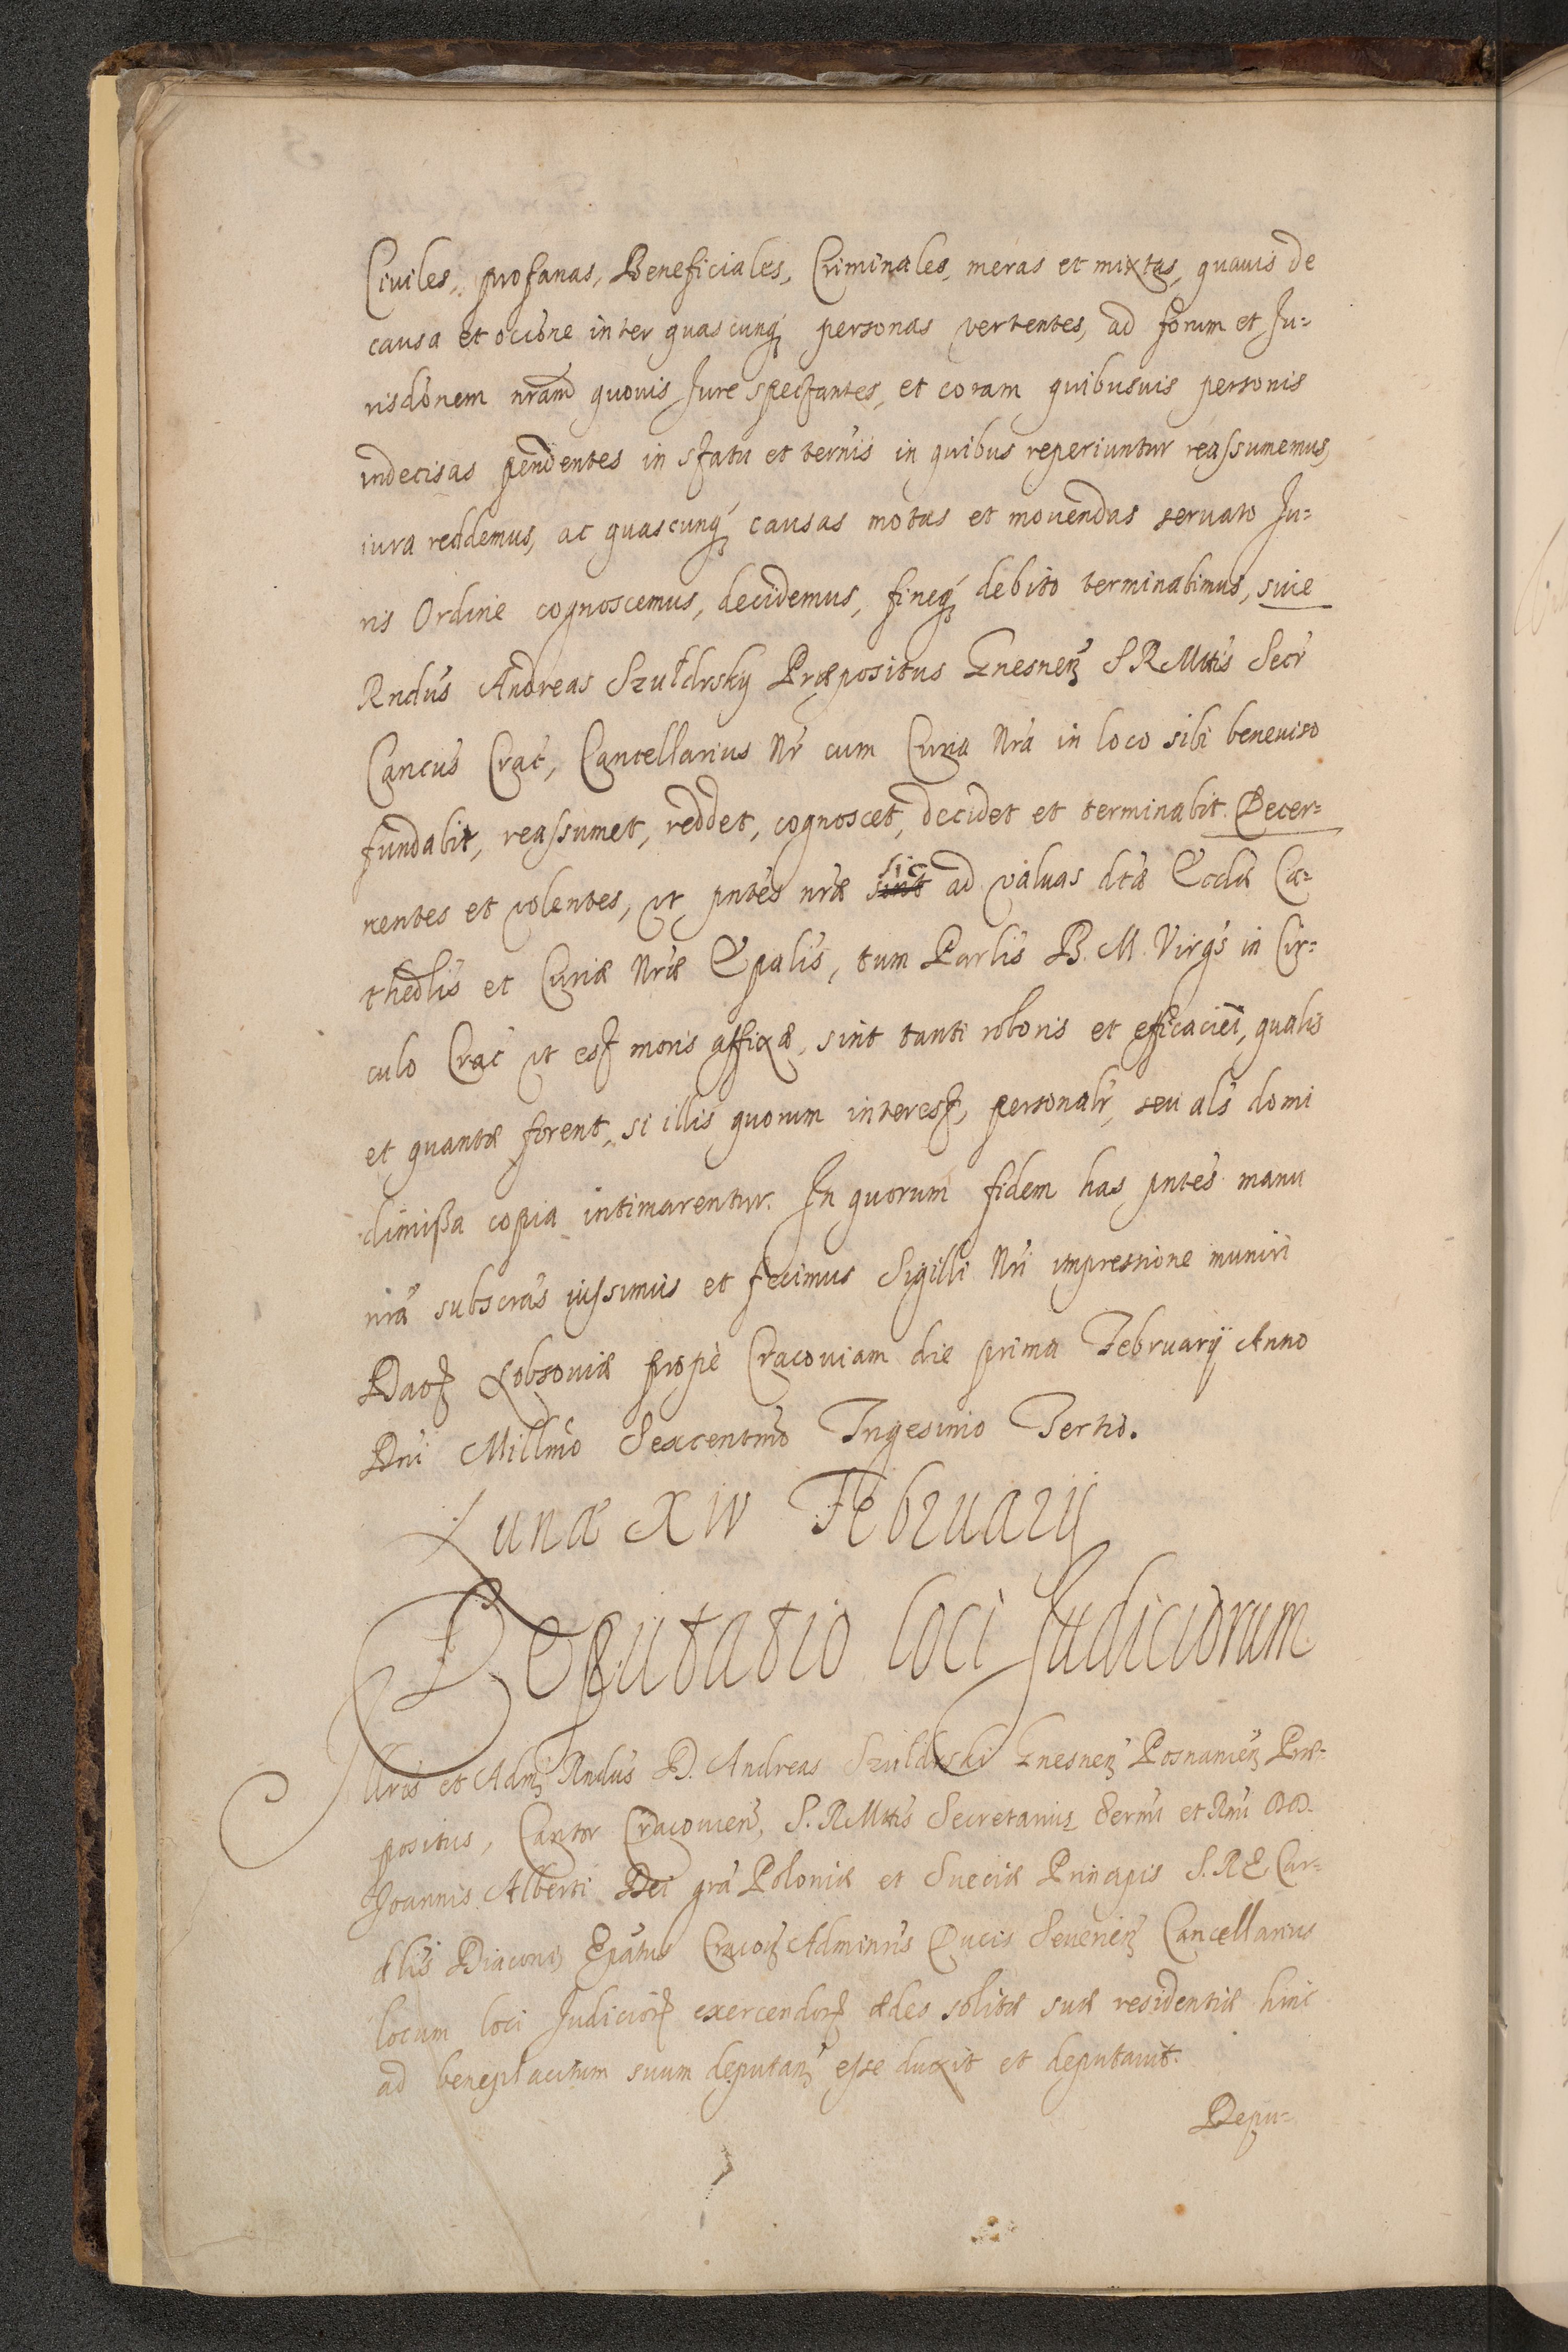 Civiles, profanas, Beneficiales, Criminales, meras et mixtas, quauis de
causa et occõne inter quascunq́ personas vertentes, ad forum et Ju=
risdõnem nrãm quouis Jure spectantes, et coram quibusuis personis
indecisas pendentes in statu et ternïs in quibus reperiuntur reassumemus,
iura reddemus, ac quascunq́ causas motas et mouendas seruato Ju=
ris Ordine cognoscemus, decidemus, fineq́ debito terminabimus, siue
Rndus Andreas Szułdrsky Præpositus Gnesneñ S R Mttis Secr
Cancus Crac, Cancellarius Nr cum Curia Nra in loco sibi beneuiso
fundabit, reassumet, reddet, cognoscet, decidet et terminabit. Decer=
nentes et volentes, ut pntes nræ sic ad valuas dtæ Ecclæ Ca=
thedlis et Curiæ Nræ Epalis, tum Parlis B. M. Virgs in Cir=
culo Crac ut est moris affixæ, sint tanti roboris et efficaciei, qualis
et quantæ forent, si illis quorum interest, personalr, seu als domi
dimißa copia intimarentur. In quorum fidem has pntes manu
nra subscras iussimus et fecimus Sigilli Nri impressione muniri
Dat Lobsouiæ propè Cracouiam die prima Februarij Anno
Dni Millmo Sexcentmo Trigesimo Tertio.
Lunæ XIV Februarij
Deputatio loci Judiciorum
Illris et Adm Rndus D. Andreas Szułdrski Gnesneñ Posnanieñ Præ=
positus, Cantor Cracouien, S. R Mttis Secretarius Sermi et Rmi DD.
Joannis Alberti Dei gra Poloniæ et Sueciæ Principis S. R E Car=
dlis Diaconi, Epatus Cracou Adminris Ducis Seuerien Cancellarius
locum loci Judicior exercendor ædes solitæ suæ residentiæ hinc
ad beneplacitum suum deputan esse duxit et deputauit.
Depu=